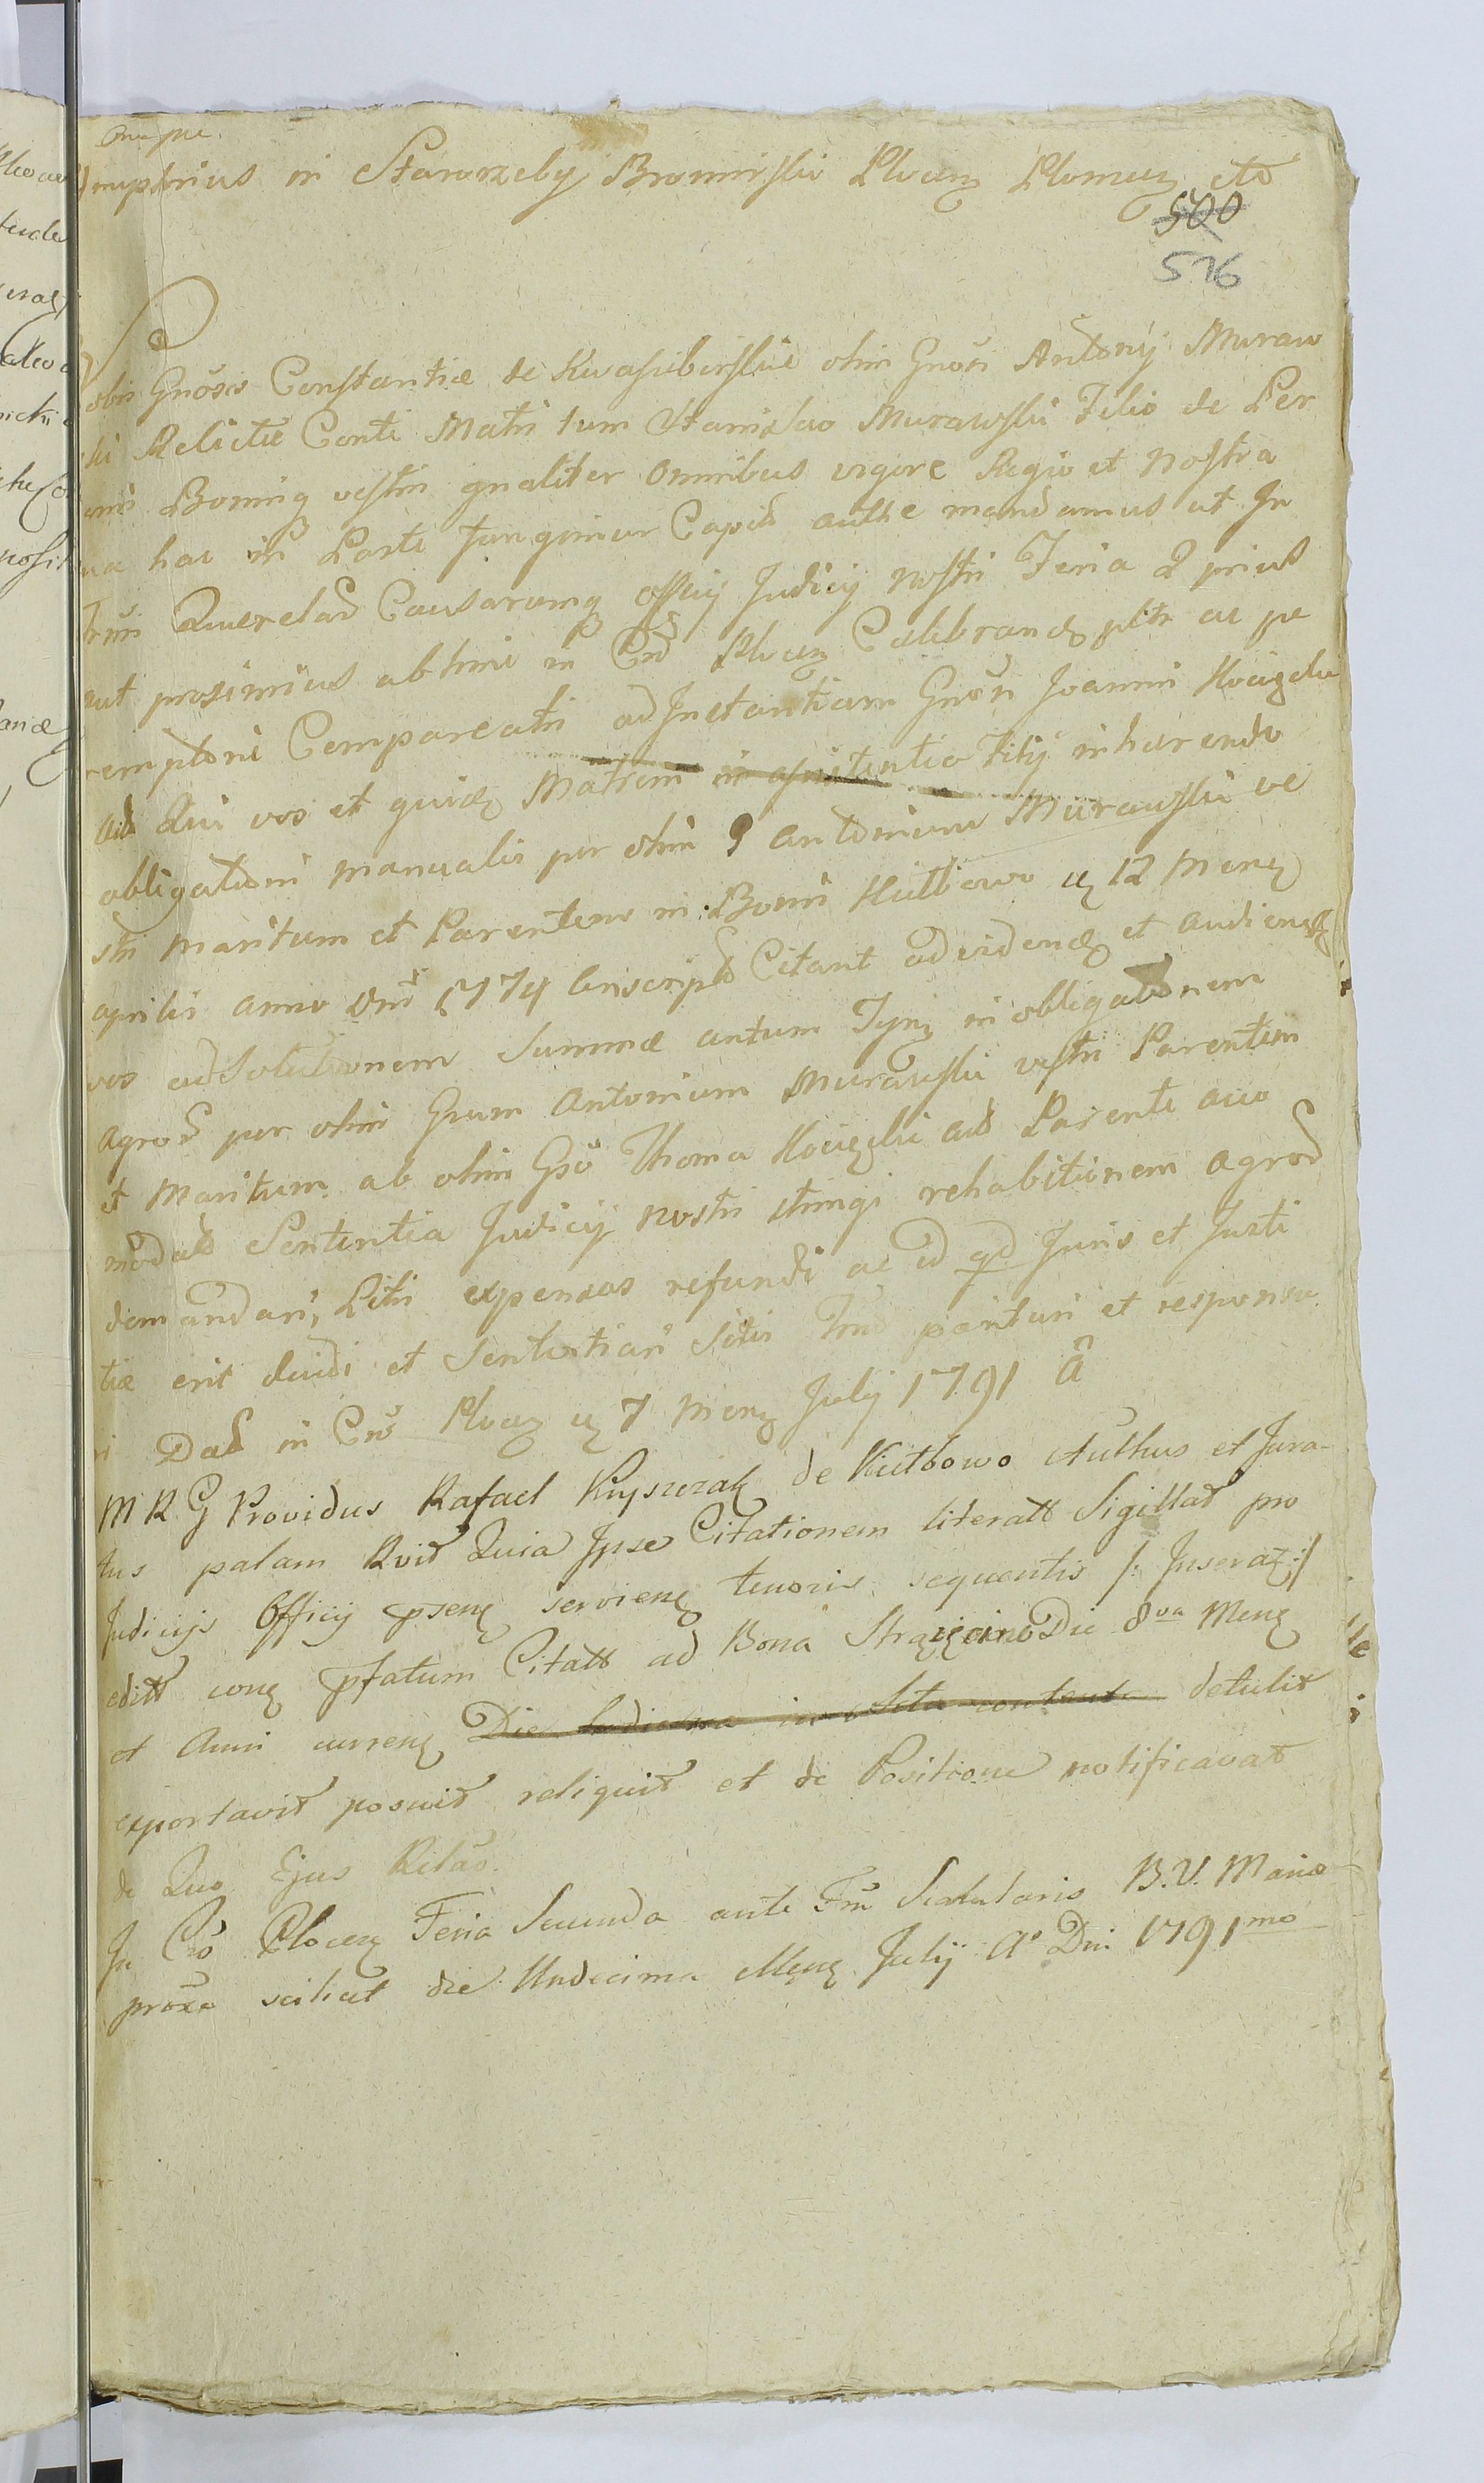 Onupe.
nuphrius in Starorzeby Bromirski Plocen Plomien etc
500
516
obis Gnosis Constantiæ de Kwasiborskie olim Gnosi Antonij Muraw
ki Relictæ Conti Matri tum Stanislao Murawski Filio de Per
onis Bonisq vestris gnaliter omnibus vigore Regio et nostra
ua hac in Parte fungimur Capitl autthe mandamus ut In
trmis Querelar Causarumq officij Judicij nostri Feria 2 prius
aut proximius abhinc in Cro Plocen Celebrand pltr ac pe
remptorie Compareatis ad Instantiam Gnosi Joannis Kociezski
Aab Qui vos et quidem Matrem in assistentia Filij inhærendo
obligationi manuali per olim G Antonium Murawski ve
stri maritum et Parentem in Bonis Kuttiowo d 12 Mens
aprilis anno Dni 1774 Conscript Citant ad videndum et audiendum
vos ad Solutionem Summæ centum Tynf in obligationem
agror per olim Gsum Antonium Murawski vestri Parentem
et Maritum ab olim Gso Thoma Kociezski Aab Parente acco
modat Sententia Judicij nostri stringi rehabitionem agror
demandari, Litis expensas refundi ac id qd Juris et Justi
tiæ erit decidi et Sententiari Sitis Trmi parituri et responsu
ri Dat in Cro Plocen d 7 Mens Julij 1791 A
M R G Providus Rafael Kryszczak de Kuttbowo Autthus et Jura-
tus palam Rvit Quia Ipse Citationem literalt Sigillat pro
Judicijs Officij psens serviens tenoris sequentis /: Inserat :/
editt cong pfatum Citatt ad Bona Strążęcino Die 8va Mens
et Anni currens Die detulit
exportavit posuit reliquit et de Positione notificavat
de Quo Ejus Rélao.
In Cro Plocen Feria Secunda ante Fm Scalularis B.V. Mariæ
proxa scilicet die Undecima Mens Julij Ao Dni 1791mo